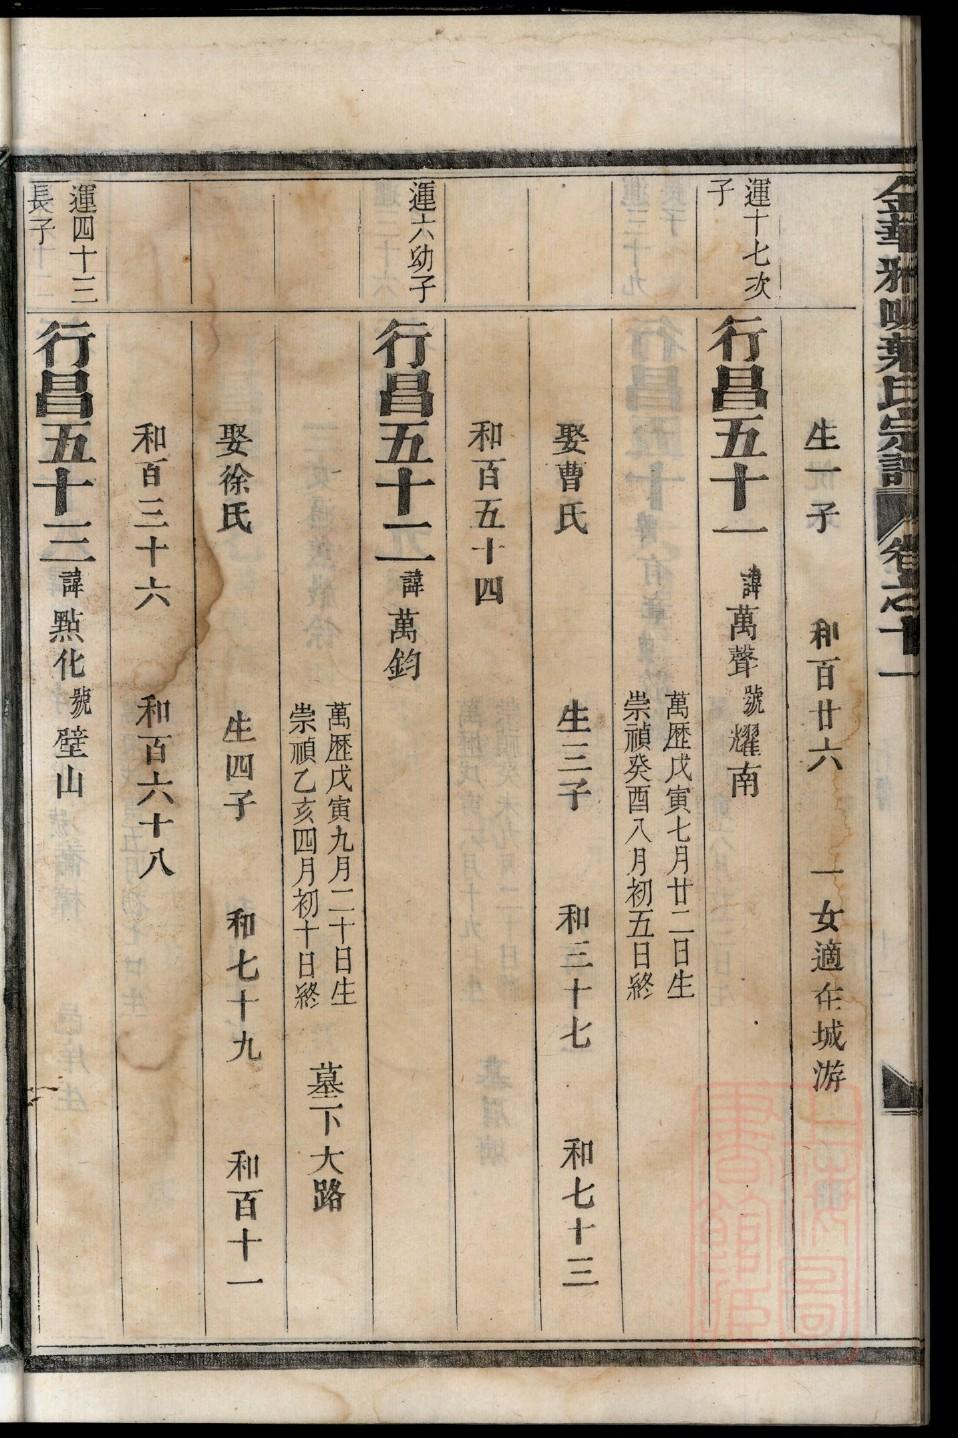 金華雅畈葉氏宗譜 卷之十一
生一子 和百廿六 一女適在城游
運十七次子
行昌五十一 諱萬聲號耀南
萬歷戊寅七月廿二日生
崇禎癸酉八月初五日終
娶曹氏 生三子 和三十七 和七十三
和百五十四
運六幼子
行昌五十二 諱萬鈞
萬歷戊寅九月二十日生
崇禎乙亥四月初十日終
墓下大路
娶徐氏 生四子 和七十九 和百十一
和百三十六 和百六十八
運四十三長子
行昌五十三 諱點化號壁山
上海圖書館藏